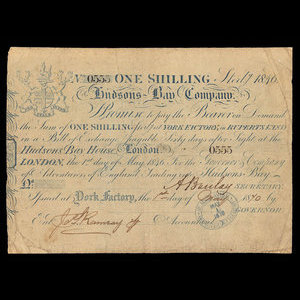 No. 0555 ONE SHILLING Sterl'g 1846.
Hudsons Bay Company.
I Promise to pay the Bearer on Demand
the Sum of ONE SHILLING Sterl'g at YORK FACTORY, in RUPERTS LAND
in a Bill of Exchange payable Sixty days after Sight at the
Hudson's Bay House London. 0555
LONDON, the 1st day of May 1846. For the Governor & Company
of Adventurers of England Trading into Hudsons Bay.
SECRETARY
Issued at York Factory, the day of 18 by
GOVERNOR
Ent'd Jas. R. Ramsay Accountant